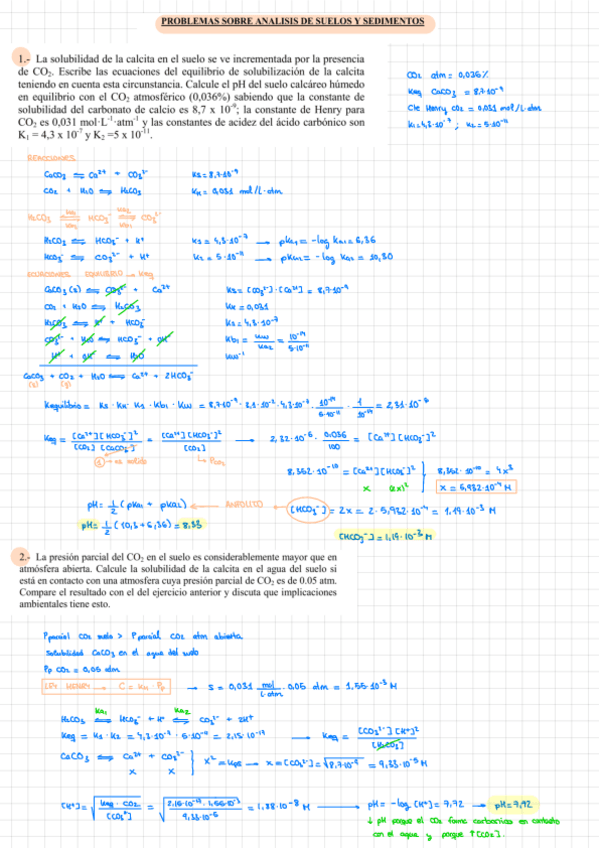 PROBLEMAS SOBRE ANALISIS DE SUELOS Y SEDIMENTOS
1.- La solubilidad de la calcita en el suelo se ve incrementada por la presencia
de CO₂. Escribe las ecuaciones del equilibrio de solubilización de la calcita
teniendo en cuenta esta circunstancia. Calcule el pH del suelo calcáreo húmedo
en equilibrio con el CO₂ atmosférico (0,036%) sabiendo que la constante de
solubilidad del carbonato de calcio es 8,7 x 10⁻⁹; la constante de Henry para
CO₂ es 0,031 mol·L⁻¹·atm⁻¹ y las constantes de acidez del ácido carbónico son
K₁ = 4,3 x 10⁻⁷ y K₂ =5 x 10⁻¹¹.
CO₂ atm = 0,036%
Keq CaCO₃ = 8,7·10⁻⁹
Cte Henry CO₂ = 0,031 mol/L·atm
K₁=4,3·10⁻⁷ ; K₂ = 5·10⁻¹¹
REACCIONES
CaCO₃ ⇌ Ca²⁺ + CO₃²⁻ Ks = 8,7·10⁻⁹
CO₂ + H₂O ⇌ H₂CO₃ KH = 0,031 mol/L·atm
H₂CO₃ ⇌ HCO₃⁻ ⇌ CO₃²⁻
H₂CO₃ ⇌ HCO₃⁻ + H⁺ K₁ = 4,3·10⁻⁷ → pKa₁ = -log Ka₁ = 6,36
HCO₃⁻ ⇌ CO₃²⁻ + H⁺ K₂ = 5·10⁻¹¹ → pKa₂ = -log Ka₂ = 10,30
ECUACIONES EQUILIBRIO → Keq
CaCO₃ (s) ⇌ CO₃²⁻ + Ca²⁺ Ks = [CO₃²⁻]·[Ca²⁺] = 8,7·10⁻⁹
CO₂ + H₂O ⇌ H₂CO₃ KH = 0,031
H₂CO₃ ⇌ H⁺ + HCO₃⁻ K₁ = 4,3·10⁻⁷
CO₃²⁻ + H₂O ⇌ HCO₃⁻ + OH⁻ Kb₁ = Kw/Ka₂ = 10⁻¹⁴/5·10⁻¹¹
H⁺ + OH⁻ ⇌ H₂O Kw⁻¹
CaCO₃ + CO₂ + H₂O ⇌ Ca²⁺ + 2HCO₃⁻
(s) (g)
Kequilibrio = Ks · KH · K₁ · Kb₁ · Kw = 8,7·10⁻⁹ · 3,1·10⁻² · 4,3·10⁻⁷ · 10⁻¹⁴/5·10⁻¹¹ · 1/10⁻¹⁴ = 2,31·10⁻⁶
Keq = [Ca²⁺][HCO₃⁻]²/[CO₂][CaCO₃] = [Ca²⁺][HCO₃⁻]²/[CO₂] → 2,32·10⁻⁶ · 0,036/100 = [Ca²⁺][HCO₃⁻]²
① → es sólido → Pco₂
8,352·10⁻¹⁰ = [Ca²⁺][HCO₃⁻]² } 8,352·10⁻¹⁰ = 4x³
x (2x)² x = 5,932·10⁻⁴ M
pH = 1/2 (pKa₁ + pKa₂) ← ANFOLITO ← [HCO₃⁻] = 2x = 2·5,932·10⁻⁴ = 1,19·10⁻³ M
pH = 1/2 (10,3 + 6,36) = 8,33
[HCO₃⁻] = 1,19·10⁻³ M
2.- La presión parcial del CO₂ en el suelo es considerablemente mayor que en
atmósfera abierta. Calcule la solubilidad de la calcita en el agua del suelo si
está en contacto con una atmosfera cuya presión parcial de CO₂ es de 0.05 atm.
Compare el resultado con el del ejercicio anterior y discuta que implicaciones
ambientales tiene esto.
Pparcial CO₂ suelo > Pparcial CO₂ atm abierta
Solubilidad CaCO₃ en el agua del suelo
Pp CO₂ = 0,05 atm
LEY HENRY → C = KH · Pp → S = 0,031 mol/L·atm · 0,05 atm = 1,55·10⁻³ M
H₂CO₃ ⇌ HCO₃⁻ + H⁺ ⇌ CO₃²⁻ + 2H⁺
Keq = K₁ · K₂ = 4,3·10⁻⁷ · 5·10⁻¹¹ = 2,15·10⁻¹⁷ → Keq = [CO₃²⁻][H⁺]²/[H₂CO₃]
CaCO₃ ⇌ Ca²⁺ + CO₃²⁻ } x² = Kps → x = [CO₃²⁻] = √8,7·10⁻⁹ = 9,33·10⁻⁵ M
x x
[H⁺] = √ = √ = 1,88·10⁻⁸ M → pH = -log [H⁺] = 7,72 → pH = 7,72
↓ pH porque el CO₂ forma carbonico en contacto
con el agua y porque ↑[CO₂].